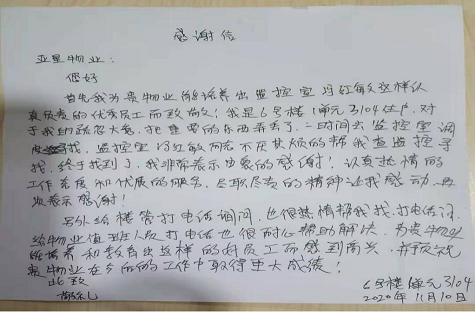 感谢信
亚星物业：
您好
首先我为贵物业能培养出监控室冯红敏这样认
真负责的优秀员工而致敬！我是6号楼1单元3104住户，对
于我的疏忽大意，把重要的东西弄丢了，一时间去监控室调
找，监控室冯红敏同志不厌其烦的帮我查监控寻
找，终于找到了，我非常表示由衷的感谢！认真热情的
工作态度和优质的服务，尽职尽责的精神让我感动，再
次表示感谢！
另外给楼管打电话询问，也很热情帮我找，打电话
给物业值班人员打电话也很耐心帮助解决，为贵物业
能培养和教育出这样的好员工而感到高兴，并预祝
贵物业在今后的工作中取得更大成绩！
此致
敬礼
6号楼1单元3104
2020年11月10日